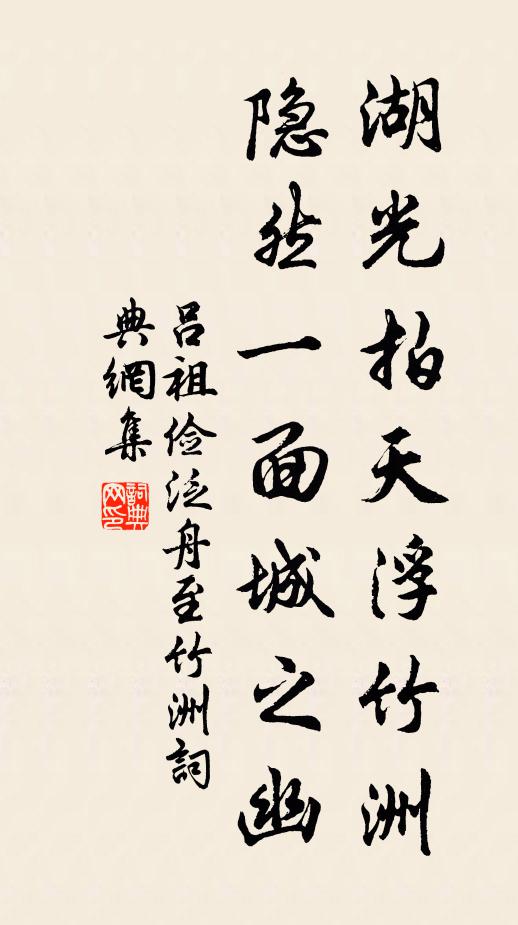 湖光拍天浮竹洲
隐然一面城之幽
吕祖俭泛舟至竹洲詞
典網集
詞典网印